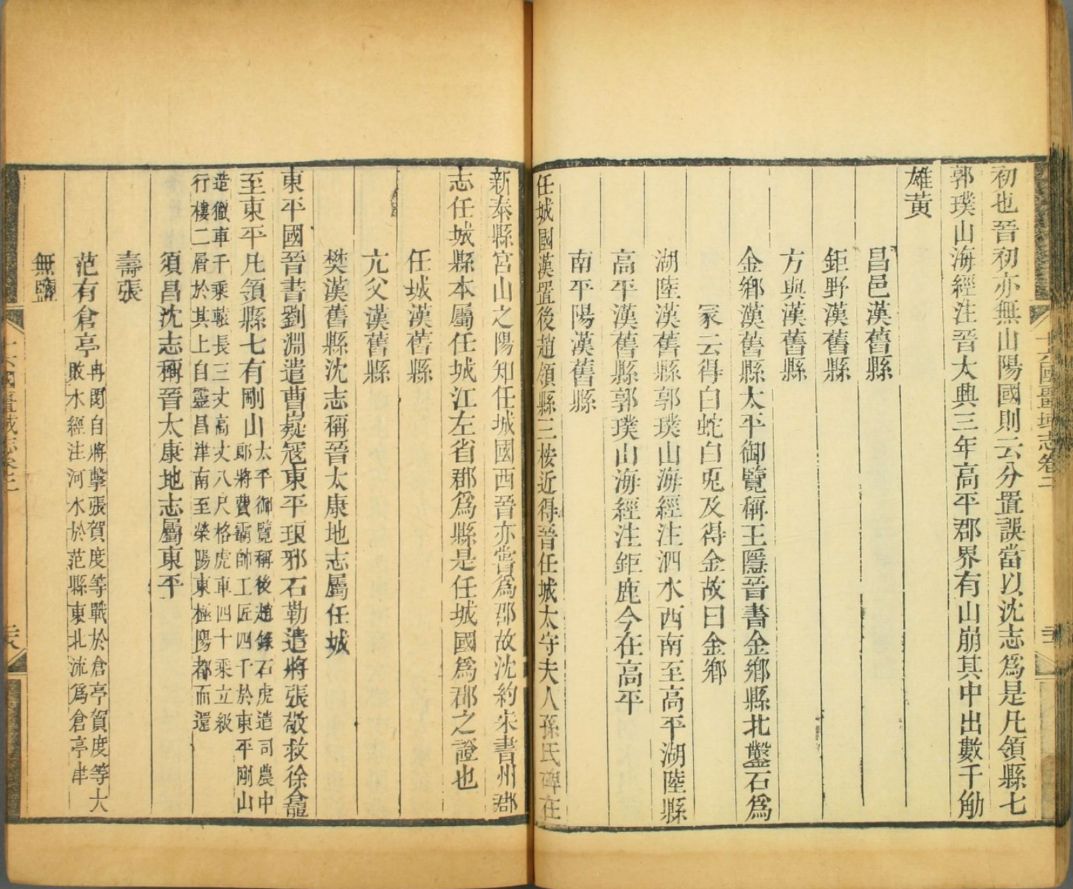 初也晉初亦無山陽國則云分置誤當以沈志爲是凡領縣七
郭璞山海經注晉大興三年高平郡界有山崩其中出數千觔
雄黃
昌邑漢舊縣
鉅野漢舊縣
方與漢舊縣
金鄉漢舊縣太平御覽稱王隱晉書金鄉縣北鑿石爲
冢云得白蛇白兎及得金故曰金鄉
湖陸漢舊縣郭璞山海經注泗水西南至高平湖陸縣
高平漢舊縣郭璞山海經注鉅鹿今在高平
南平陽漢舊縣
任城國漢置後趙領縣三按近得晉任城太守夫人孫氏碑在
新泰縣宮山之陽知任城國西晉亦嘗爲郡故沈約宋書州郡
志任城縣本屬任城江左省郡爲縣是任城國爲郡之證也
任城漢舊縣
亢父漢舊縣
樊漢舊縣沈志稱晉太康地志屬任城
東平國晉書劉淵遣曹嶷寇東平琅邪石勒遣將張敬救徐龕
至東平凡領縣七有剛山
太平御覽稱後趙錄石虎遣司農中
郎將費霸帥工匠四千於東平剛山
造獵車千乘轅長三丈高丈八尺格虎車四十乘立級
行樓二層於其上自靈昌津南至滎陽東極陽都而還
須昌沈志稱晉太康地志屬東平
壽張
范有倉亭
冉閔自將擊張賀度等戰於倉亭賀度等大
敗水經注河水於范縣東北流爲倉亭津
無鹽
十六國疆域志卷二